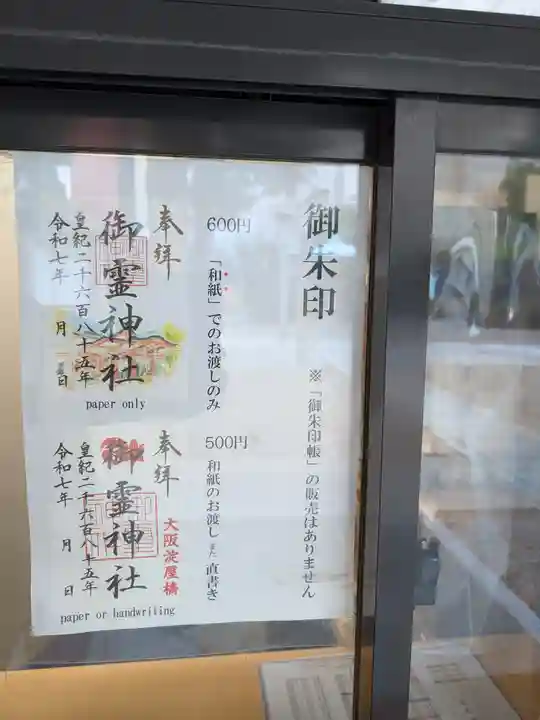 御朱印
※「御朱印帳」の販売はありません
600円
「和紙」でのお渡しのみ
奉拜
御霊神社
皇紀二千六百八十五年
令和七年 月 日
paper only
500円
和紙のお渡し また 直書き
奉拜
大阪淀屋橋
御霊神社
皇紀二千六百八十五年
令和七年 月 日
paper or handwriting